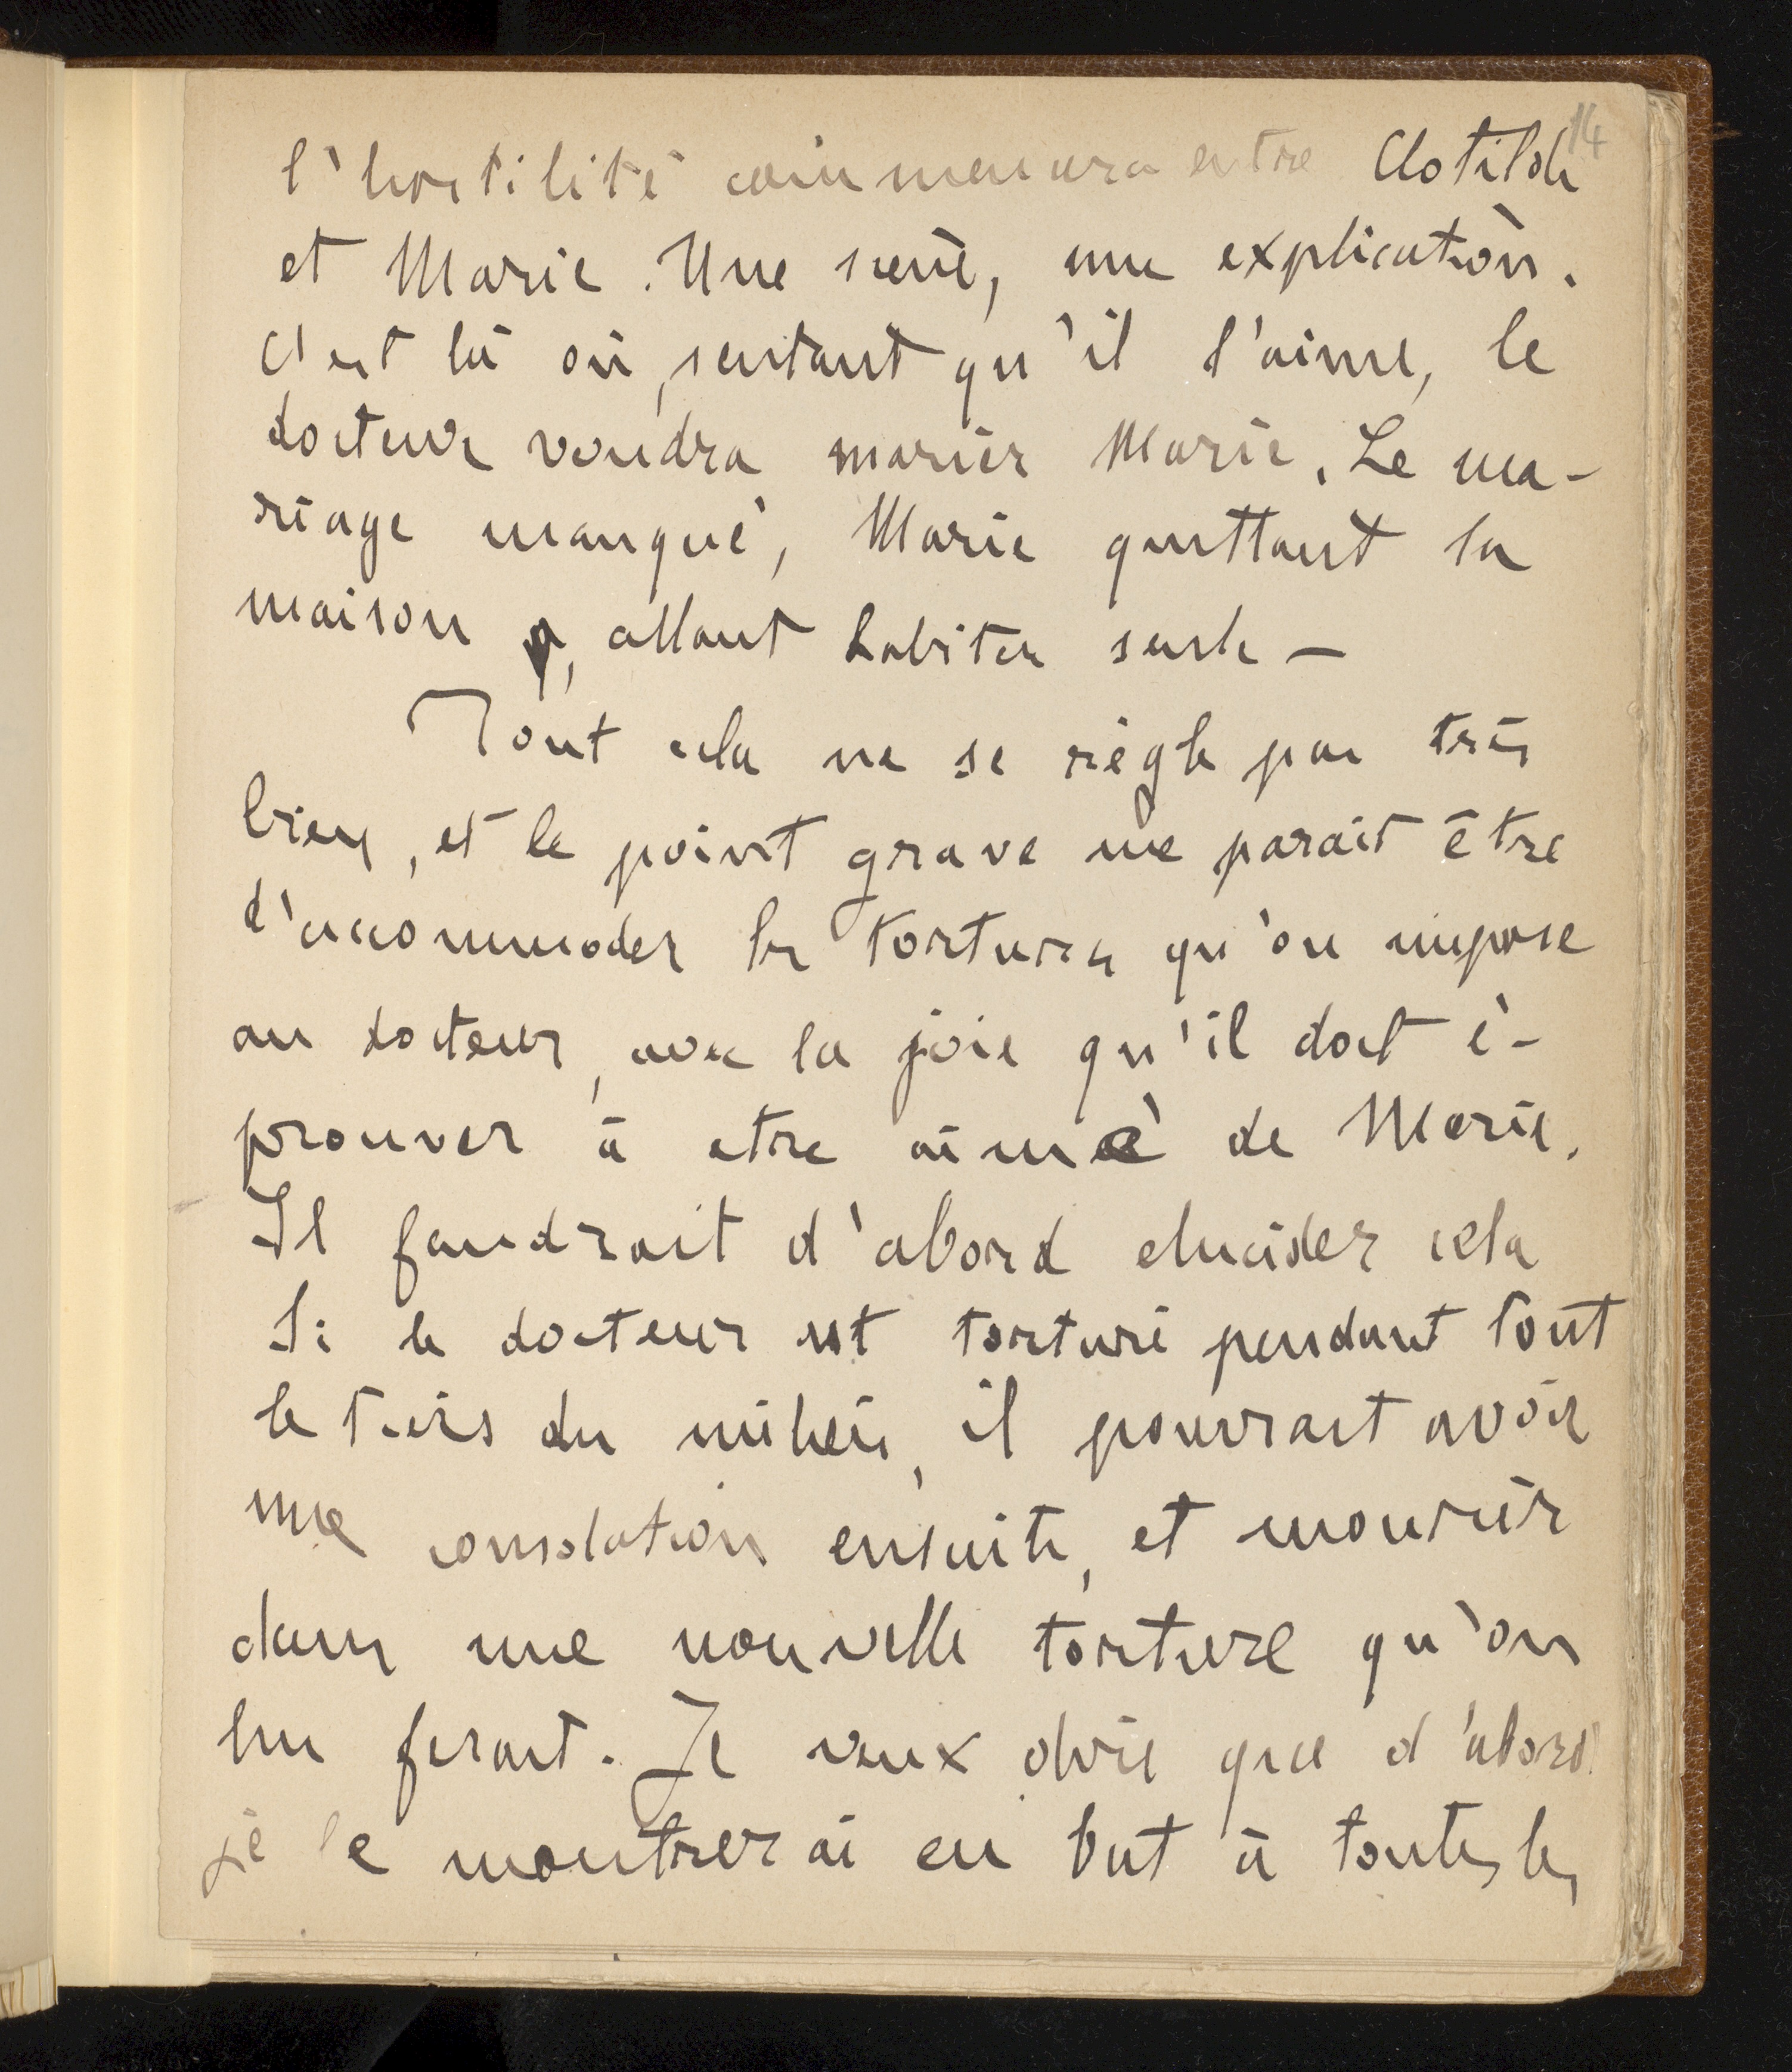 14
l'hostilité commencera entre Clotilde
et Marie. Une scène, une explication.
C'est là où, sentant qu'il l'aime, le
docteur voudra marier Marie. Le ma-
riage manqué, Marie quittant la
maison, allant habiter seule —
Tout cela ne se règle pas très
bien, et le point grave me parait être
d'accommoder les tortures qu'on impose
au docteur, avec la joie qu'il doit é-
prouver à etre aimé de Marie.
Il faudrait d'abord elucider cela
Si le docteur est torturé pendant tout
le tiers du milieu, il pourrait avoir
une consolation ensuite, et mourir
dans une nouvelle torture qu'on
lui ferait. Je veux dire que d'abord
je le montrerai en but à toutes les